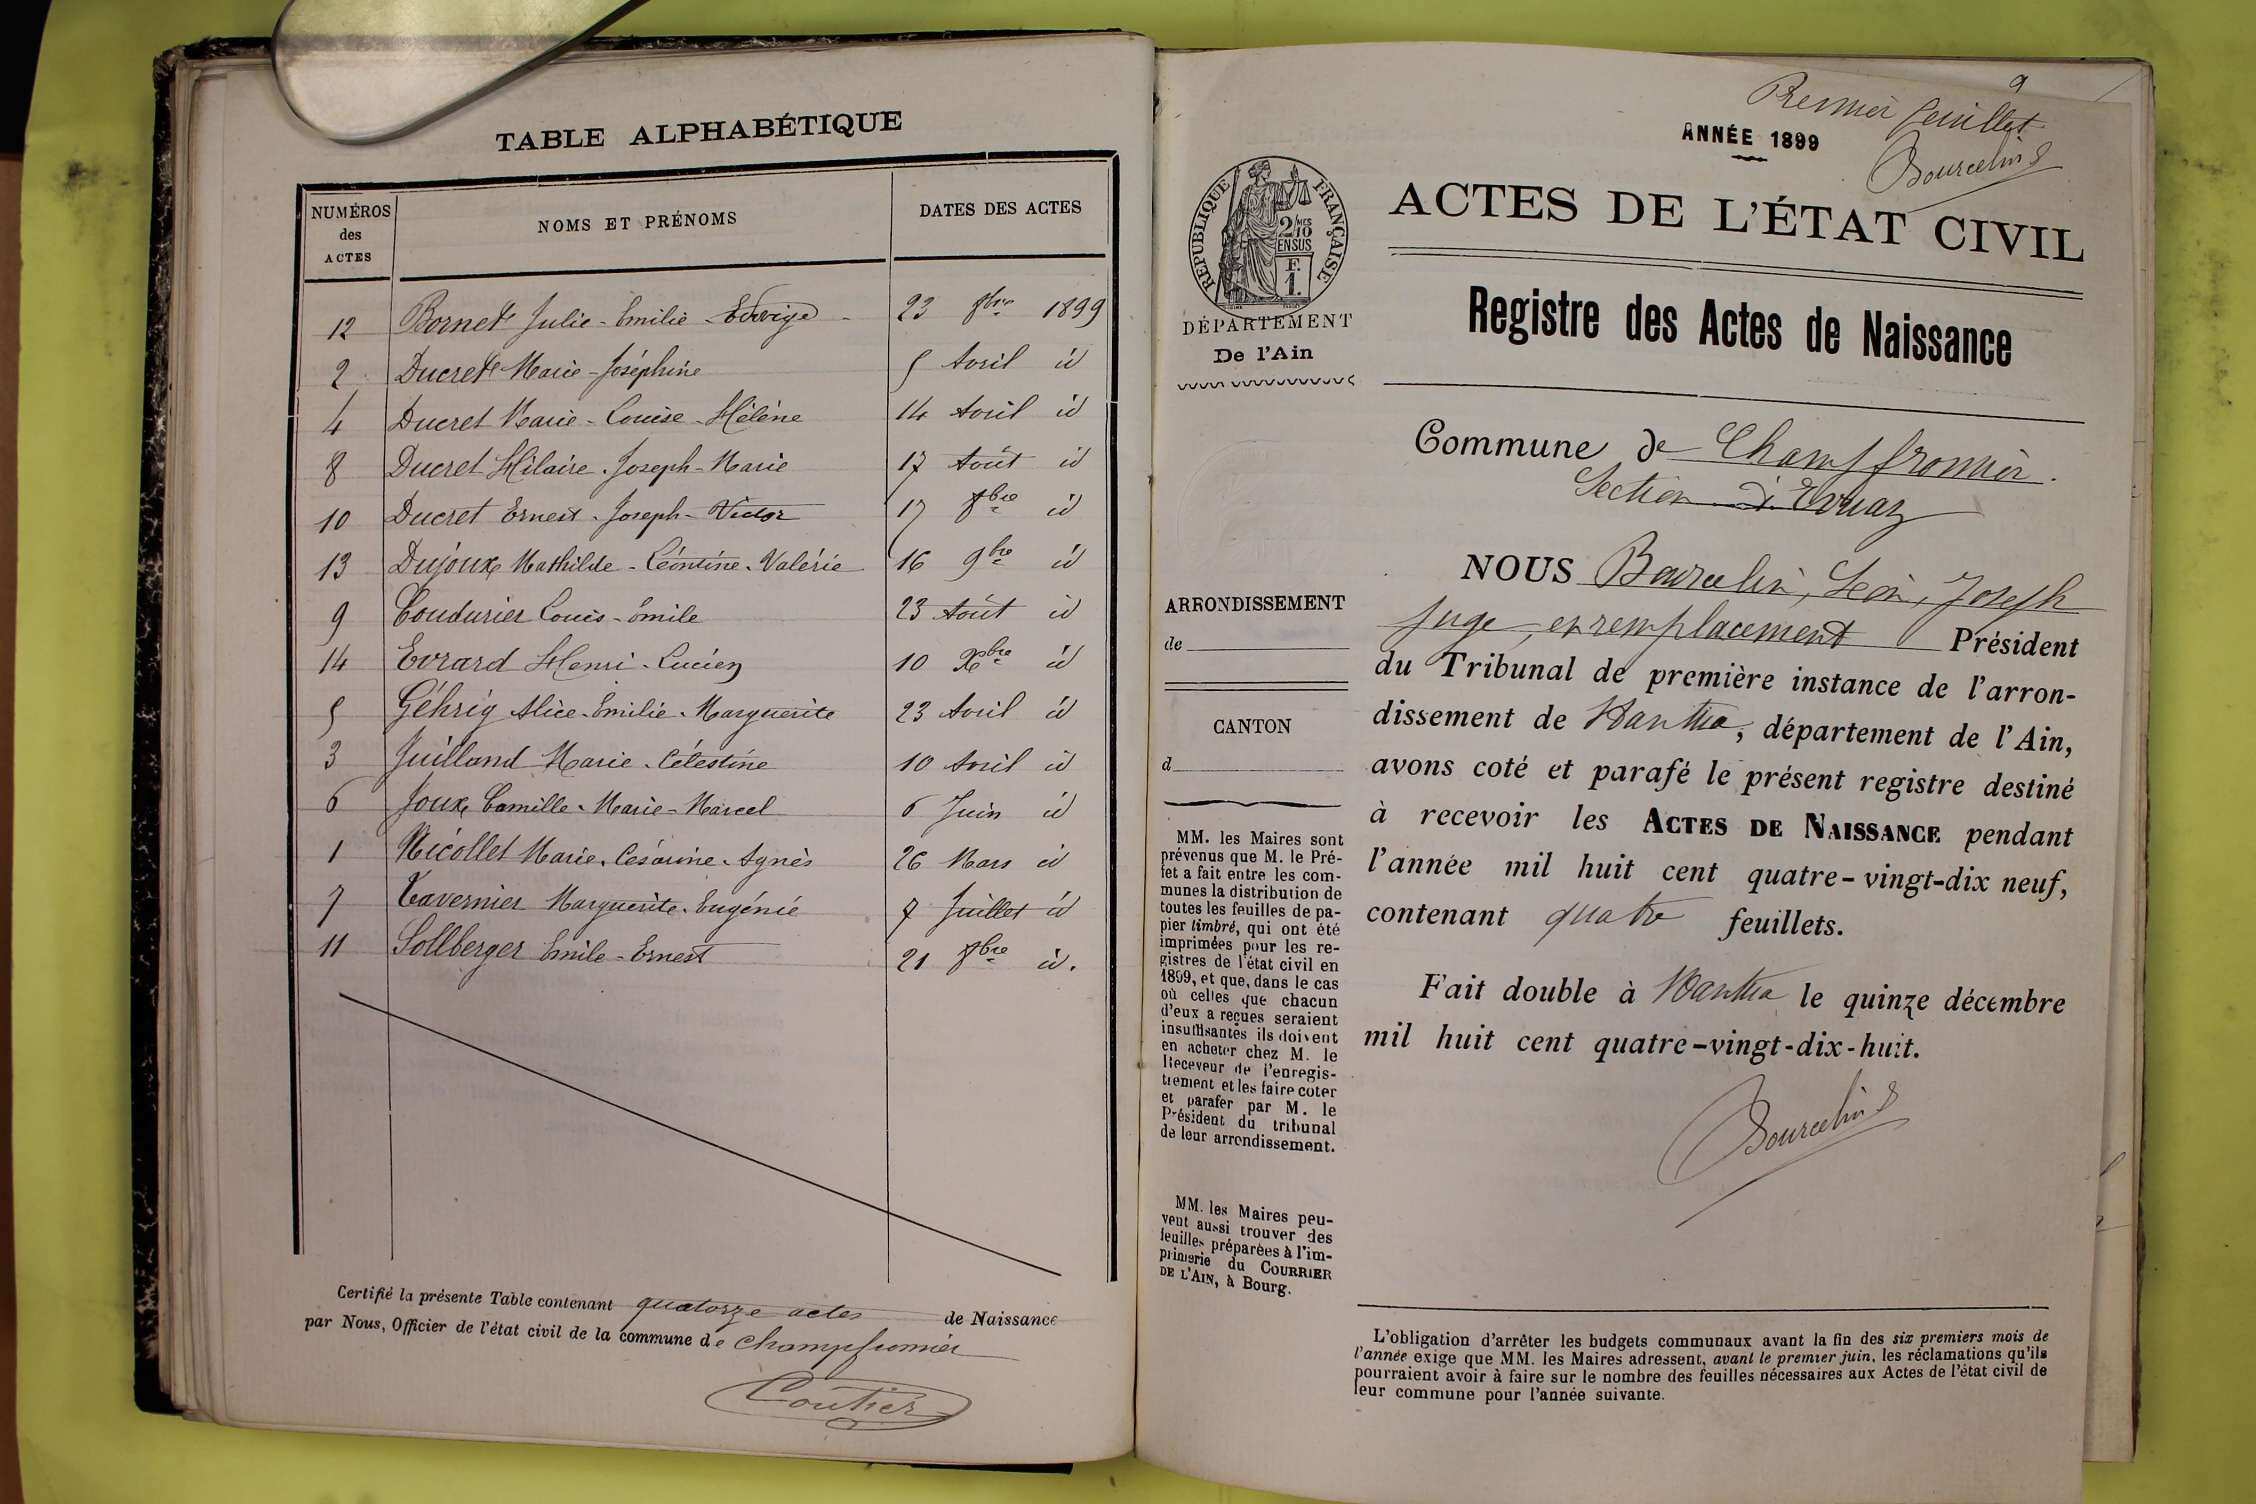 TABLE ALPHABÉTIQUE
NUMÉROS
des
ACTES
NOMS ET PRÉNOMS
DATES DES ACTES
12 Bornet Julie - Emilie - Edwige - 23 8bre 1899
2 Ducret Marie - Joséphine 5 Avril id
4 Ducret Marie - Louise - Hélène 14 Avril id
8 Ducret Hilaire - Joseph - Marie 17 Août id
10 Ducret Ernest - Joseph - Victor 17 8bre id
13 Dujoux Mathilde - Léontine - Valérie 16 9bre id
9 Coudurier Louis - Emile 23 Août id
14 Evrard Henri - Lucien 10 Xbre id
5 Géhrig Alice - Emilie - Marguerite 23 Avril id
3 Juilland Marie - Célestine 10 Avril id
6 Joux Camille - Marie - Marcel 6 Juin id
1 Nicollet Marie - Césarine - Agnès 26 Mars id
7 Tavernier Marguerite - Eugénie 7 Juillet id
11 Sollberger Emile - Ernest 21 8bre id.
Certifié la présente Table contenant quatorze actes de Naissance
par Nous, Officier de l'état civil de la commune de Champfromier
Coutier
9
Premier feuillet
Bourcelin
ANNÉE 1899
ACTES DE L'ÉTAT CIVIL
RÉPUBLIQUE FRANÇAISE
2/10MES
EN SUS
F.
1.
DÉPARTEMENT
De l'Ain
Registre des Actes de Naissance
Commune de Champfromier.
Section d'Evuaz
ARRONDISSEMENT
de
CANTON
d
MM. les Maires sont
prévenus que M. le Pré-
fet a fait entre les com-
munes la distribution de
toutes les feuilles de pa-
pier timbré, qui ont été
imprimées pour les re-
gistres de l'état civil en
1899, et que, dans le cas
où celles que chacun
d'eux a reçues seraient
insuffisantes ils doivent
en acheter chez M. le
Receveur de l'enregis-
trement et les faire coter
et parafer par M. le
Président du tribunal
de leur arrondissement.
MM. les Maires peu-
vent aussi trouver des
feuilles préparées à l'im-
primerie du COURRIER
DE L'AIN, à Bourg.
NOUS Bourcelin, Léon, Joseph
Juge, en remplacement Président
du Tribunal de première instance de l'arron-
dissement de Nantua, département de l'Ain,
avons coté et parafé le présent registre destiné
à recevoir les ACTES DE NAISSANCE pendant
l'année mil huit cent quatre-vingt-dix neuf,
contenant quatre feuillets.
Fait double à Nantua le quinze décembre
mil huit cent quatre-vingt-dix-huit.
Bourcelin
L'obligation d'arrêter les budgets communaux avant la fin des six premiers mois de
l'année exige que MM. les Maires adressent, avant le premier juin, les réclamations qu'ils
pourraient avoir à faire sur le nombre des feuilles nécessaires aux Actes de l'état civil de
leur commune pour l'année suivante.